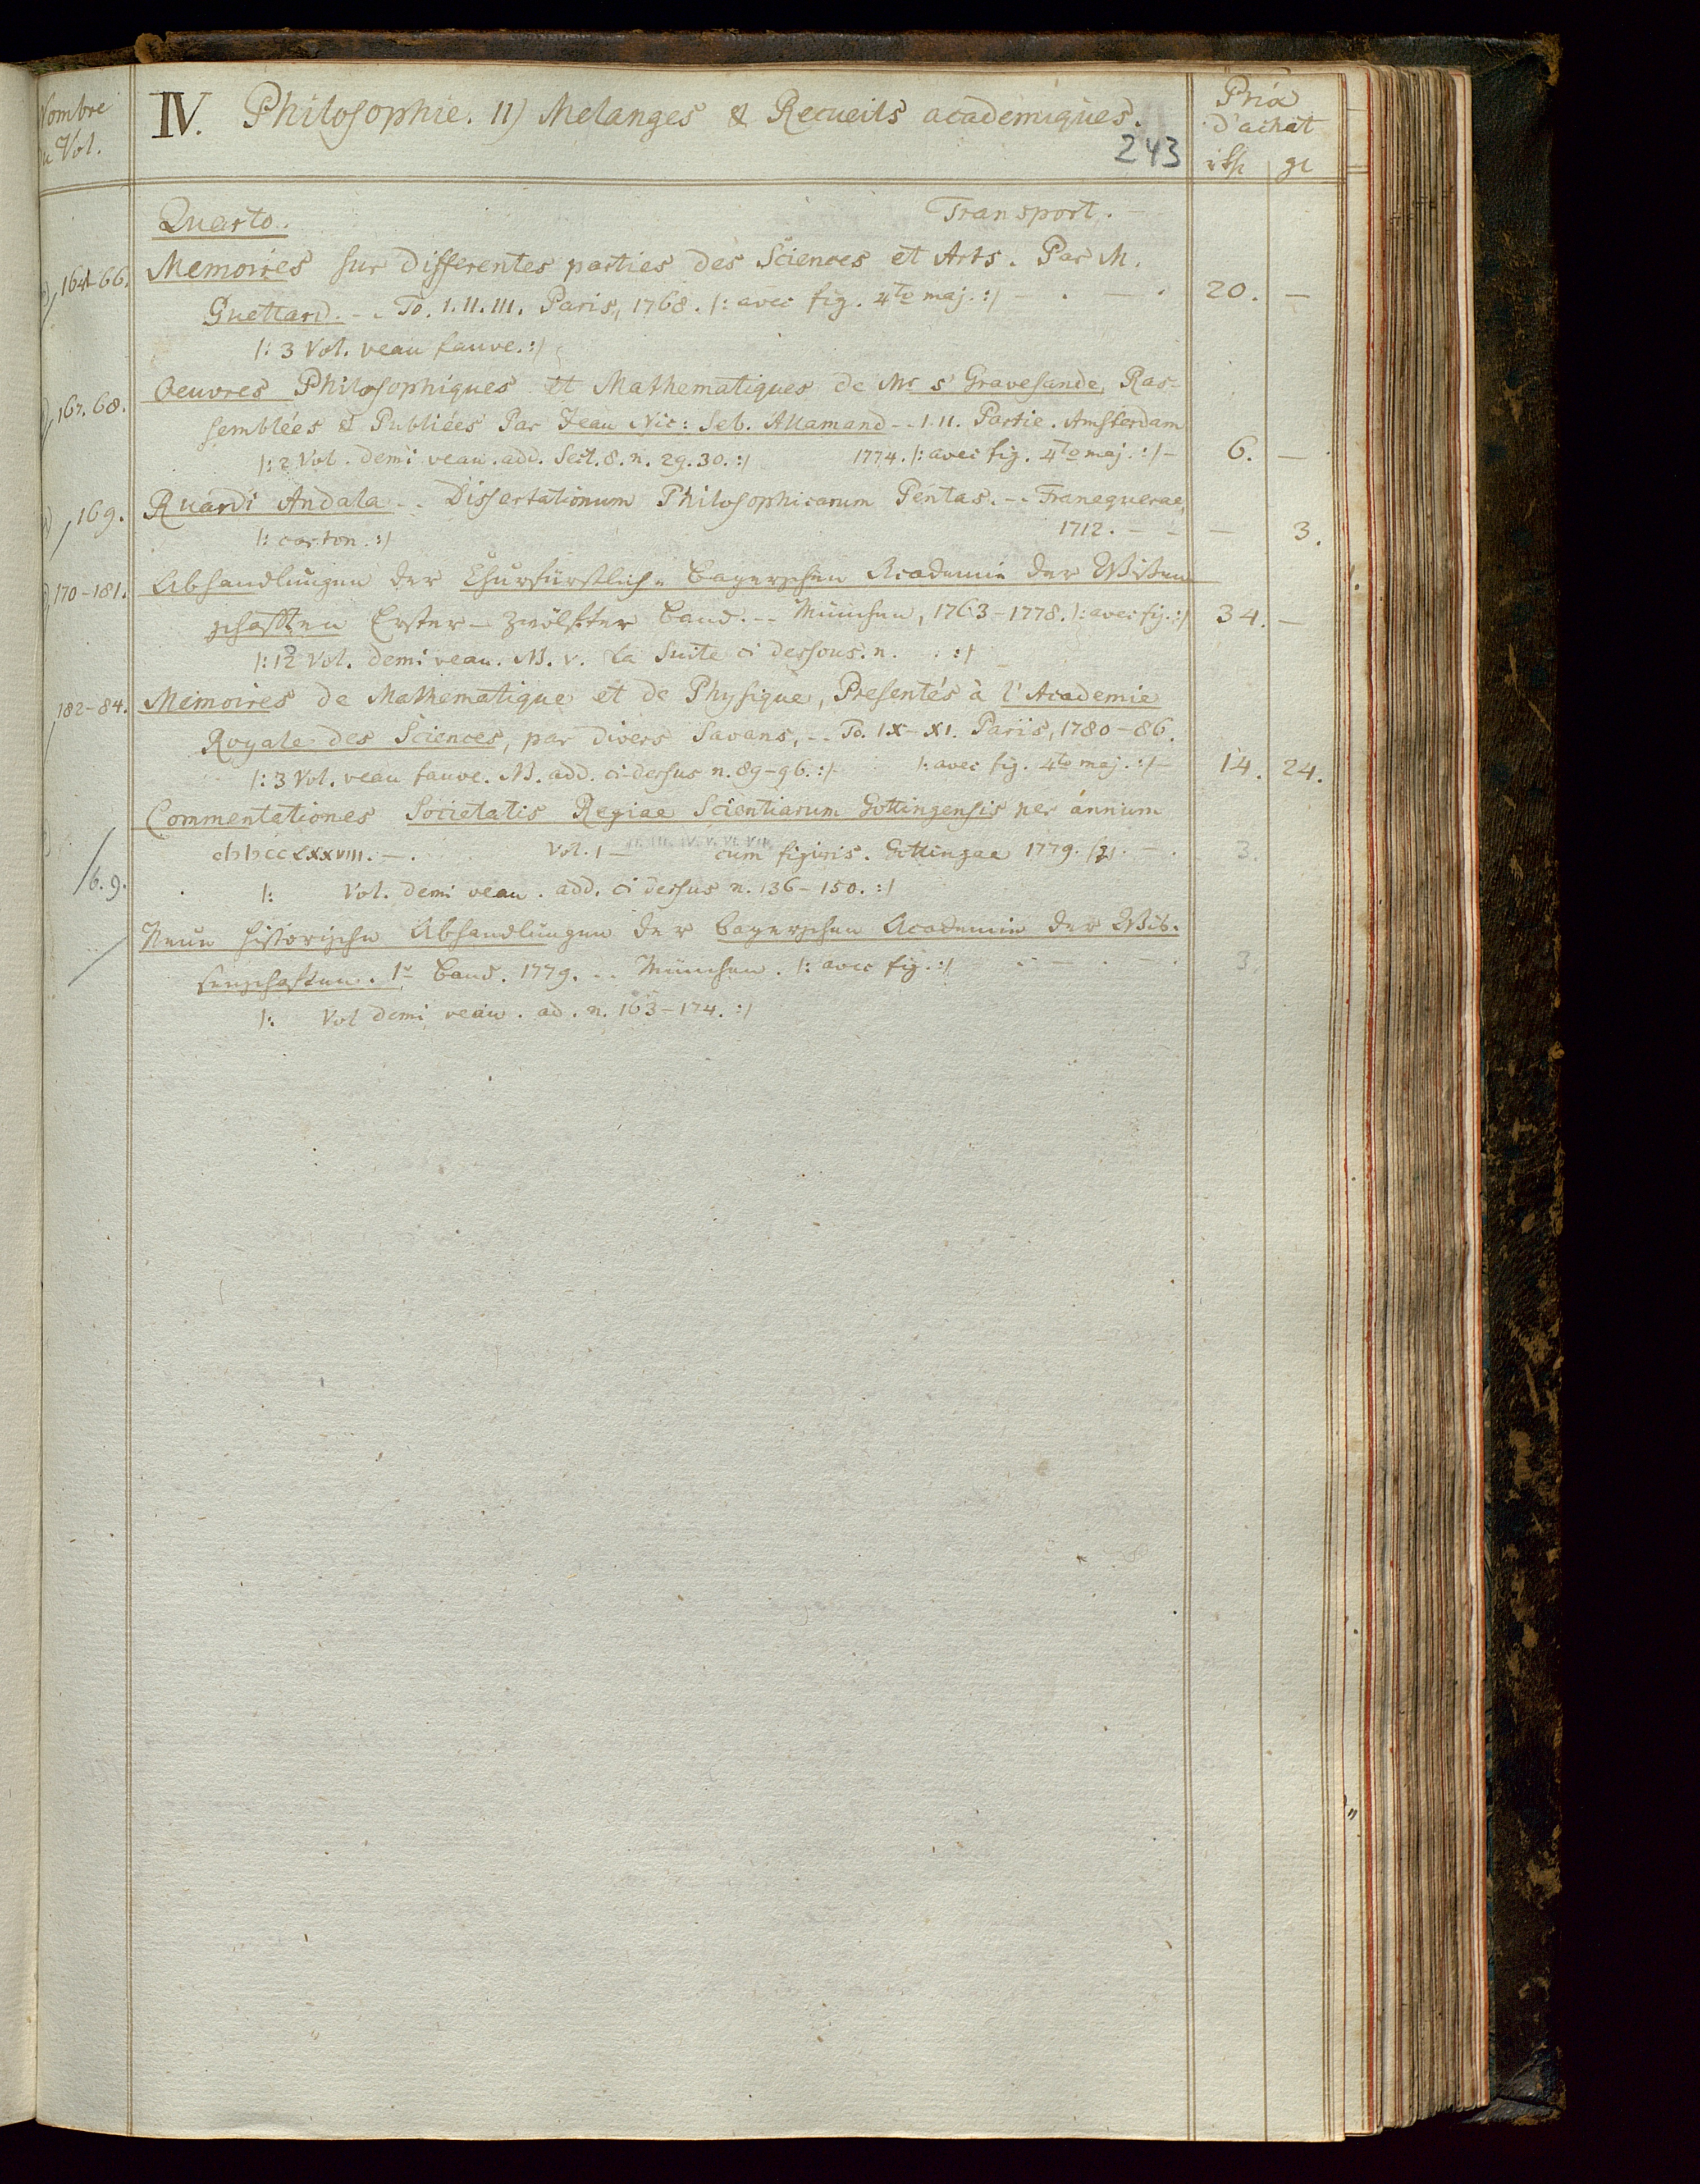 Nombre
Vol.
IV. Philosophie. 11) Melanges & Recueils academiques.
243
Prix
d'achat
rth gr
Quarto. Transport.
164-66. Memoires sur differentes parties des Sciences et Arts. Par M.
Guettard. -. To. I. II. III. Paris, 1768. /: avec fig. 4to maj. :/ - . - . 20. -
/: 3 Vol. veau fauve. :/
167. 68. Oeuvres Philosophiques et Mathematiques de Mr s Gravesande, Ras-
semblées & Publiées Par Jean Nic: Seb. Allamand -. I. II. Partie. Amsterdam
/: 2 Vol. demi veau. add. Sect. 8. n. 29. 30. :/ 1774. /: avec fig. 4to maj. :/ - 6. -
169. Ruardi Andala -. Dissertationum Philosophicarum Pentas. -. Franequerae,
/: carton. :/ 1712. - - - 3.
170-181. Abhandlungen der Churfürstlich Bayerschen Academie der Wissen
schafften Erster - Zwölfter Band. -. München, 1763-1778. /: avec fig. :/ 34. -
/: 12 Vol. demi veau. NB. v. la Suite ci dessous. n. . :/
182-84. Memoires de Mathematique et de Physique, Presentés à l'Academie
Royale des Sciences, par Divers Savans, -. To. IX-XI. Paris, 1780-86.
/: 3 Vol. veau fauve. NB. add. ci-dessus n. 89-96. :/ /: avec fig. 4to maj. :/ - 14. 24.
Commentationes Societatis Regiae Scientiarum Gottingensis per annum
cIɔIɔccLXXVIII. -. Vol. I - II. III. IV. V. VI. VII. cum figuris. Gottingae 1779. - . 3.
6. 9. /: Vol. demi veau. add. ci dessus n. 136-150. :/
Neue historische Abhandlungen der bayerschen Academie der Wis-
senschaften. 1r Band. 1779. -. München. /: avec fig. :/ 3.
/: Vol demi veau. ad. n. 163-174. :/